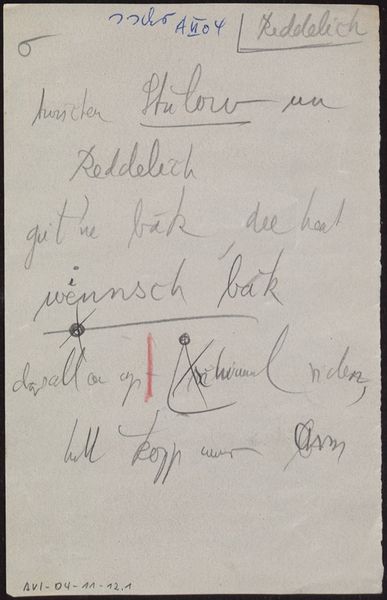 A VI 04
Reddelich
twischen Stülow un
Reddelich
gift 'ne bäk, dee heet
wennsch bäk
dor sall en up Schimmel riden,
hett Kopp unnern Arm
AVI-04-11-12.1